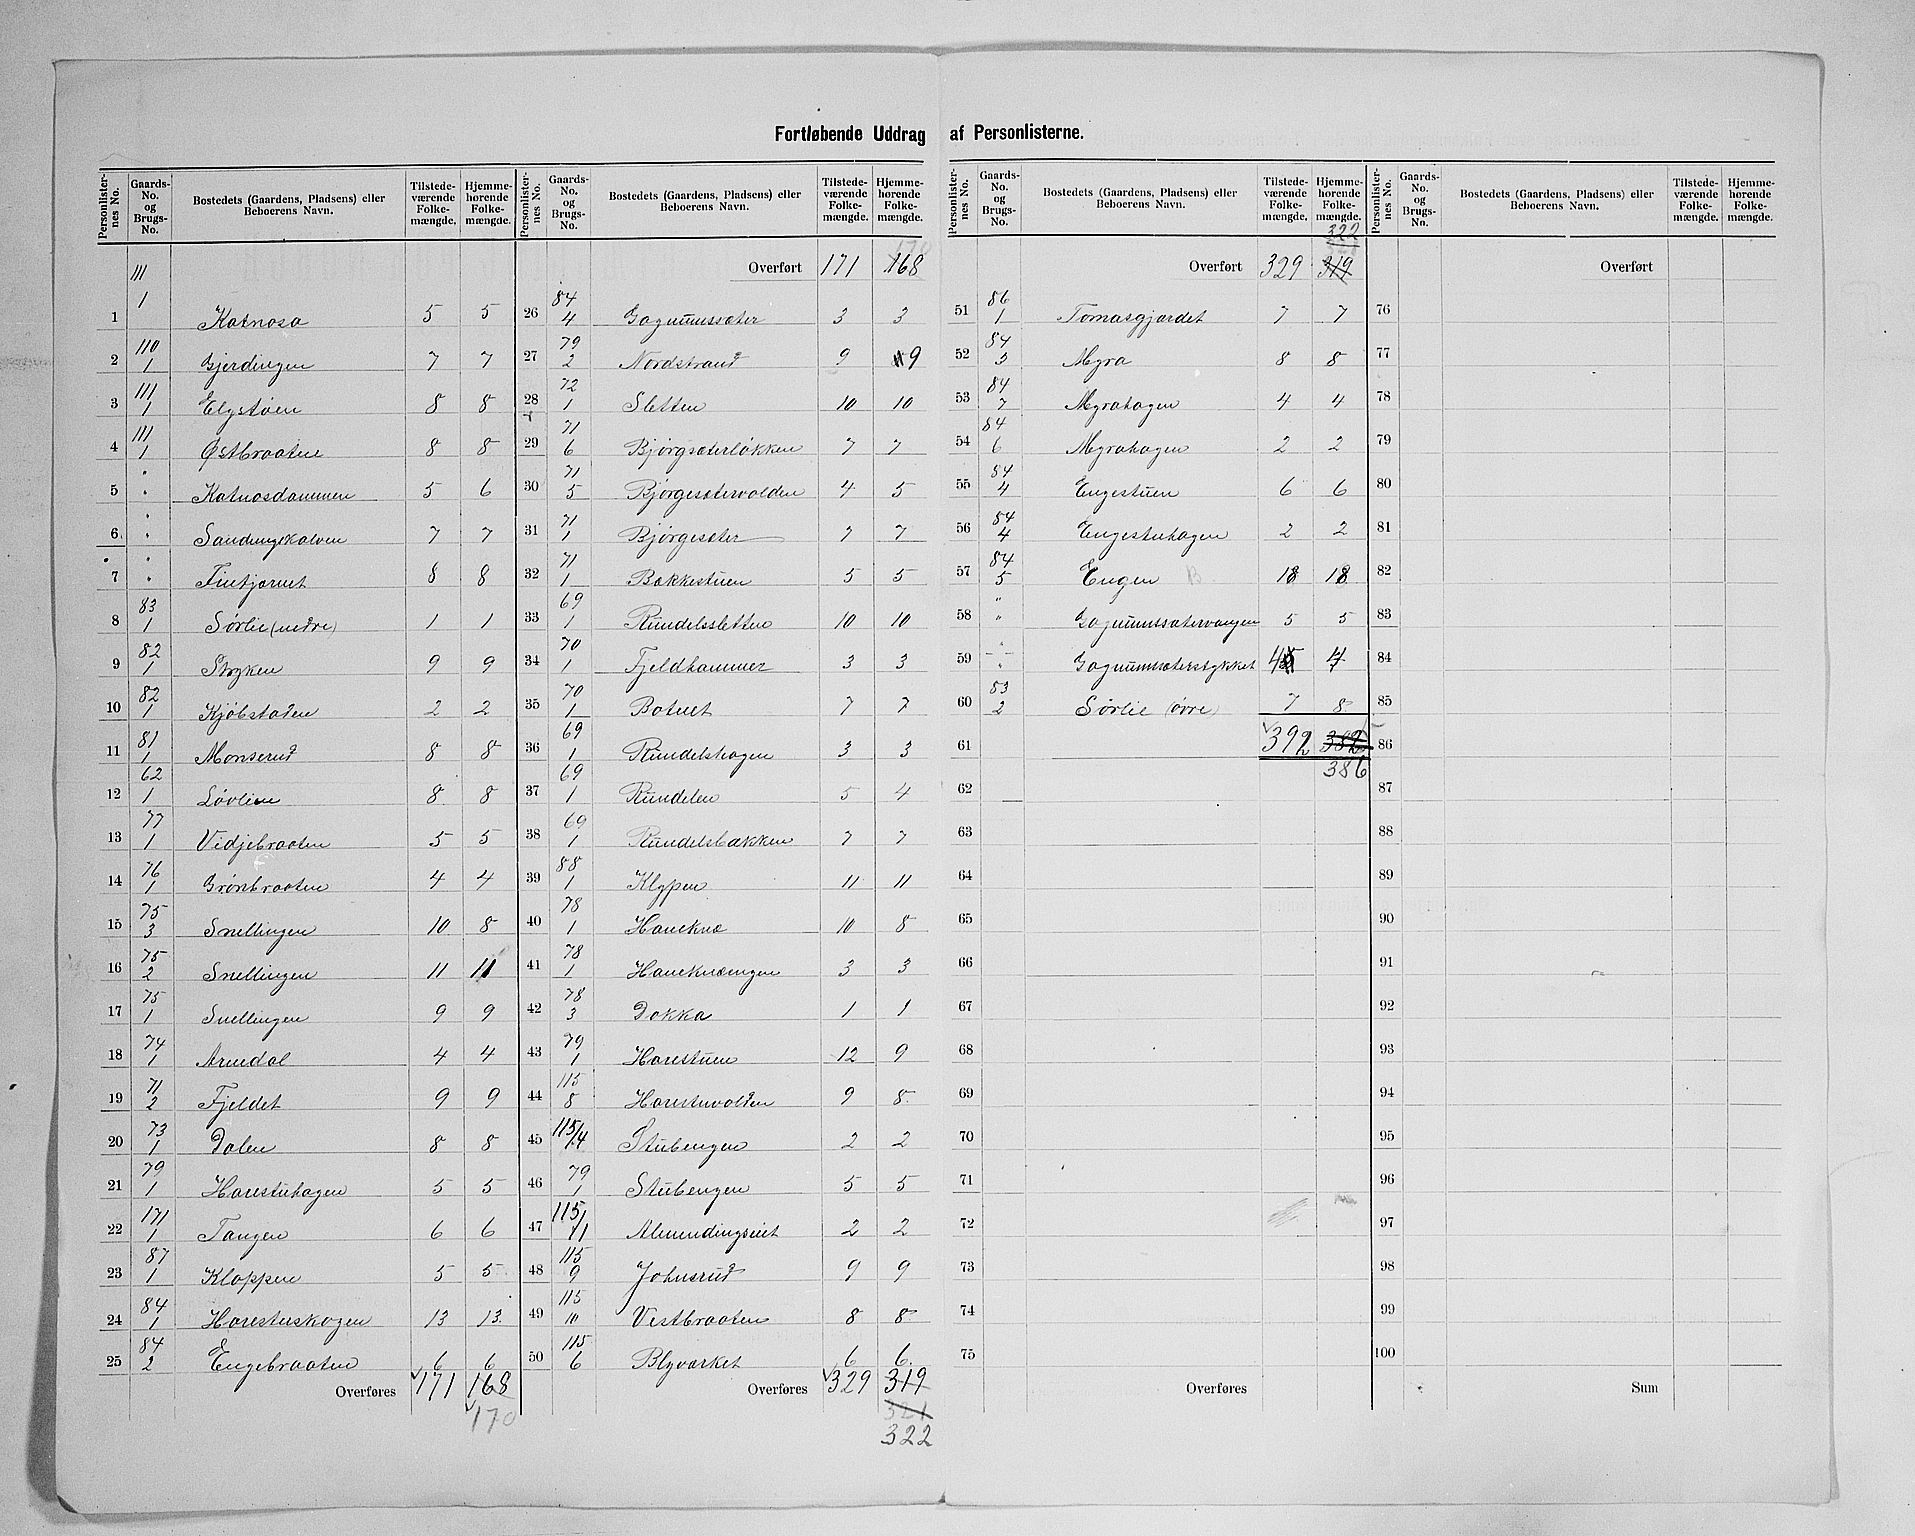 Fortløbende Uddrag af Personlisterne.
Personlister-nes No. | Gaards-No. og Brugs-No. | Bostedets (Gaardens, Pladsens) eller Beboerens Navn. | Tilstede-værende Folke-mængde. | Hjemme-hørende Folke-mængde.
111
1 | 1 | Katnosa | 5 | 5
2 | 110 1 | Gjerdingen | 7 | 7
3 | 111 1 | Elgstøen | 8 | 8
4 | 111 1 | Østbraaten | 8 | 8
5 | " " | Katnosdammen | 5 | 6
6 | " " | Sandungskalven | 7 | 7
7 | " " | Fintjernet | 8 | 8
8 | 83 1 | Sørlie (nedre) | 1 | 1
9 | 82 1 | Stryken | 9 | 9
10 | 82 1 | Kjøbstaden | 2 | 2
11 | 81 1 | Monserud | 8 | 8
12 | 62 1 | Løvlien | 8 | 8
13 | 77 1 | Vidjebraaten | 5 | 5
14 | 76 1 | Grønbraaten | 4 | 4
15 | 75 3 | Snellingen | 10 | 8
16 | 75 2 | Snellingen | 11 | 11
17 | 75 1 | Snellingen | 9 | 9
18 | 74 1 | Arnedal | 4 | 4
19 | 71 2 | Fjeldet | 9 | 9
20 | 73 1 | Dalen | 8 | 8
21 | 79 1 | Harestuhagen | 5 | 5
22 | 171 1 | Tangen | 6 | 6
23 | 87 1 | Kloppen | 5 | 5
24 | 84 1 | Harestuskogen | 13 | 13
25 | 84 2 | Engebraaten | 6 | 6
Overføres 171 168
170
Personlister-nes No. | Gaards-No. og Brugs-No. | Bostedets (Gaardens, Pladsens) eller Beboerens Navn. | Tilstede-værende Folke-mængde. | Hjemme-hørende Folke-mængde.
170
Overført 171 168
26 | 84 4 | Gagnumsæter | 3 | 3
27 | 79 2 | Nordstrand | 9 | 9
28 | 72 1 | Sletten | 10 | 10
29 | 71 6 | Bjørgsæterløkken | 7 | 7
30 | 71 5 | Bjørgesætervolden | 4 | 5
31 | 71 1 | Bjørgesæter | 7 | 7
32 | 71 1 | Bækkestuen | 5 | 5
33 | 69 1 | Rundelssletten | 10 | 10
34 | 70 1 | Fjeldhammer | 3 | 3
35 | 70 1 | Botnet | 7 | 7
36 | 69 1 | Rundelshagen | 3 | 3
37 | 69 1 | Rundelen | 5 | 4
38 | 69 1 | Rundelsbækken | 7 | 7
39 | 88 1 | Klypen | 11 | 11
40 | 78 1 | Haneknæ | 10 | 8
41 | 78 1 | Haneknæengen | 3 | 3
42 | 78 3 | Dokka | 1 | 1
43 | 79 1 | Harestuen | 12 | 9
44 | 115 8 | Harestuvolden | 9 | 8
45 | 115/4 | Stubengen | 2 | 2
46 | 79 1 | Stubengen | 5 | 5
47 | 115/11 | Almendingseiet | 2 | 2
48 | 115 9 | Johnsrud | 9 | 9
49 | 115 10 | Vestbraaten | 8 | 8
50 | 115 6 | Blyværket | 6 | 6
Overføres 329 319
321
322
Personlister-nes No. | Gaards-No. og Brugs-No. | Bostedets (Gaardens, Pladsens) eller Beboerens Navn. | Tilstede-værende Folke-mængde. | Hjemme-hørende Folke-mængde.
322
Overført 329 319
51 | 86 1 | Tomasgjordet | 7 | 7
52 | 84 3 | Myra | 8 | 8
53 | 84 7 | Myrahagen | 4 | 4
54 | 84 6 | Myrahagen | 2 | 2
55 | 84 4 | Engestuen | 6 | 6
56 | 84 4 | Engestuhagen | 2 | 2
57 | 84 5 | Engen B | 18 | 18
58 | " " | Gagnumssætervangen | 5 | 5
59 | " " | Gagnumsæterstykket | 4 | 4
60 | 83 2 | Sørlie (øvre) | 7 | 8
61 392 382
386
62
63
64
65
66
67
68
69
70
71
72
73
74
75
Overføres
Personlister-nes No. | Gaards-No. og Brugs-No. | Bostedets (Gaardens, Pladsens) eller Beboerens Navn. | Tilstede-værende Folke-mængde. | Hjemme-hørende Folke-mængde.
Overført
76
77
78
79
80
81
82
83
84
85
86
87
88
89
90
91
92
93
94
95
96
97
98
99
100
Sum